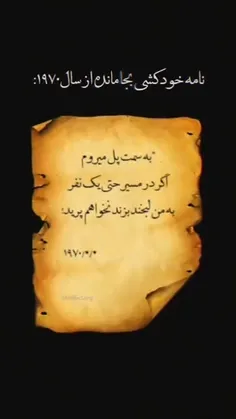 نامه خودکشی بجا مانده از سال ۱۹۷۰:
"به سمت پل میروم
اگر در مسیر حتی یک نفر
به من لبخند بزند نخواهم پرید؛
۱۹۷۰/*/*